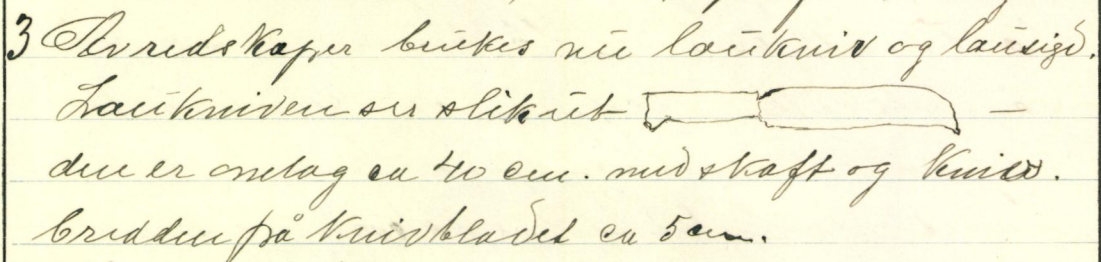 3 Av redskaper brukes nu laukniv og lausigd.
Laukniven ser slik ut —
den er omlag ca 40 cm. med skaft og kniv.
bredden på knivbladet ca 5 cm.